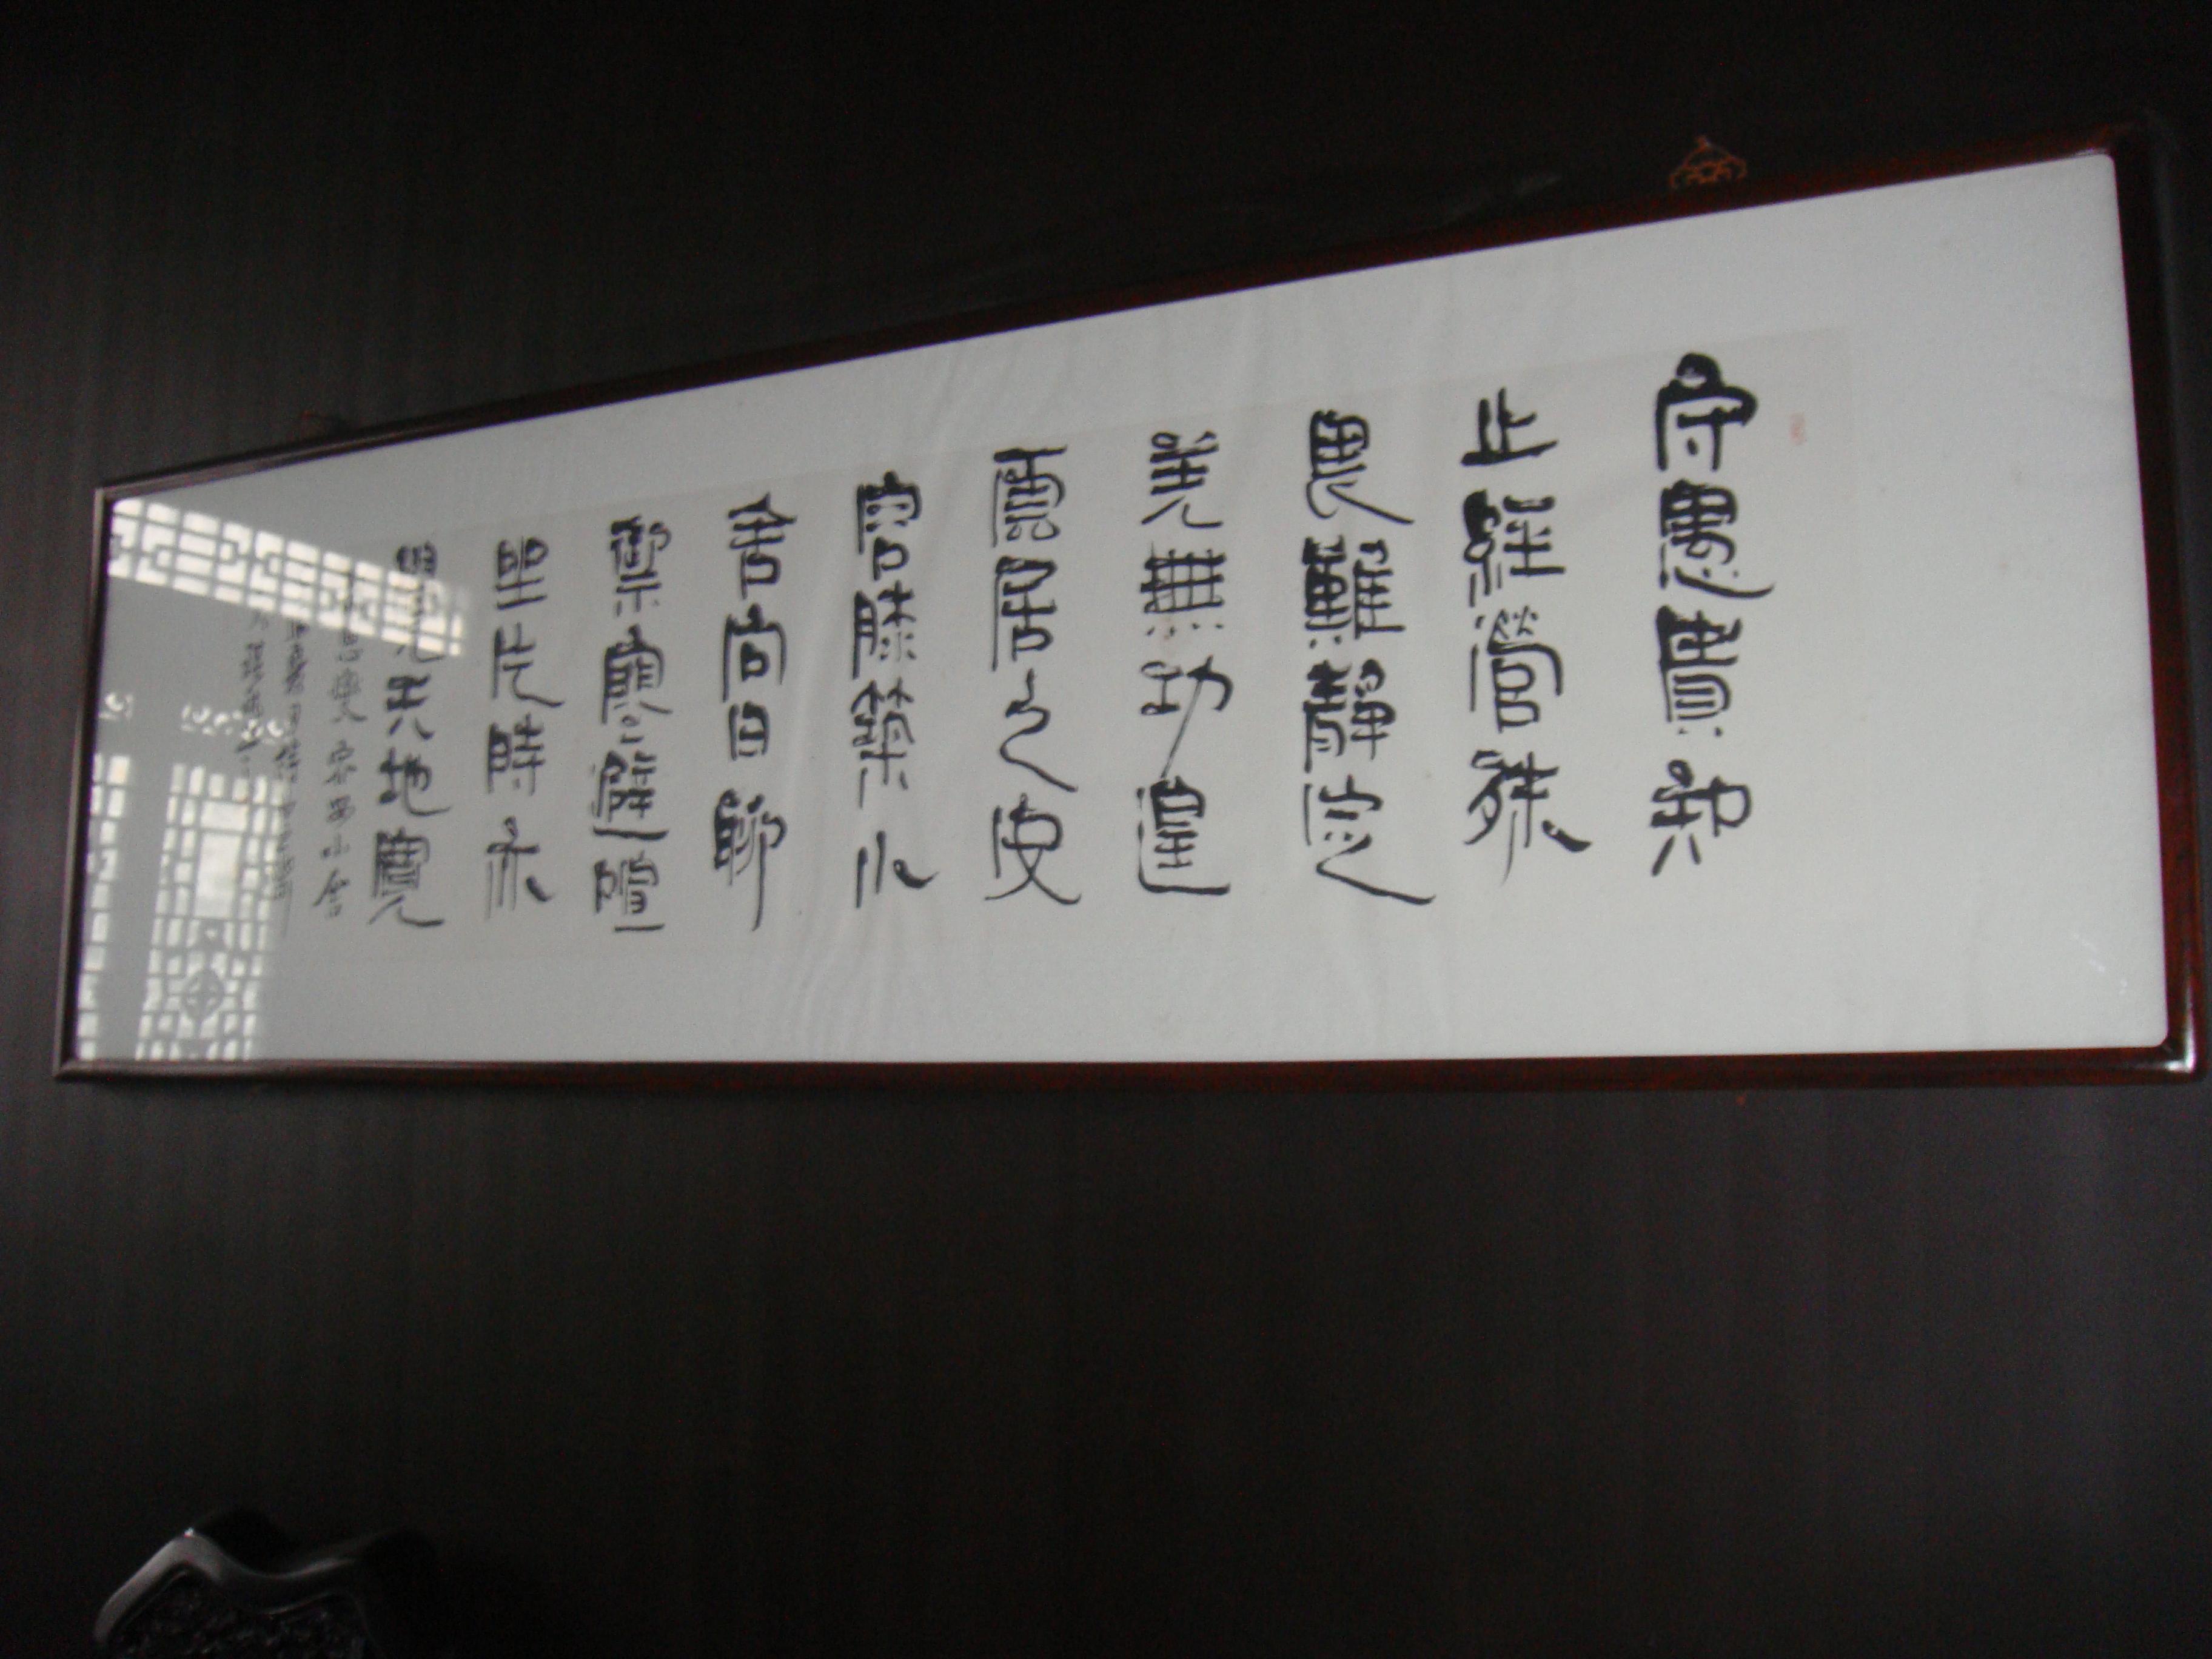 守愚貴知
止經營殊
畏難靜定
羌無功遑
慮居之安
容膝築小
舍向日聊
禦寒避喧
坐片時亦
覺天地寬